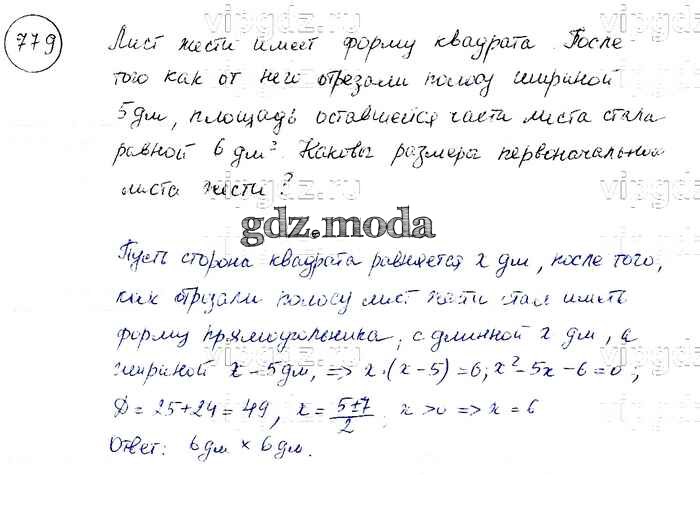 779
Лист жести имеет форму квадрата. После
того как от него отрезали полосу шириной
5 дм, площадь оставшейся части листа стала
равной 6 дм². Каковы размеры первоначального
листа жести?
gdz.moda
Пусть сторона квадрата равняется x дм, после того,
как отрезали полосу лист жести стал иметь
форму прямоугольника, с длинной x дм, а
шириной x-5 дм, => x·(x-5)=6; x²-5x-6=0;
D=25+24=49, x=(5±7)/2, x>0 => x=6
Ответ: 6 дм × 6 дм.